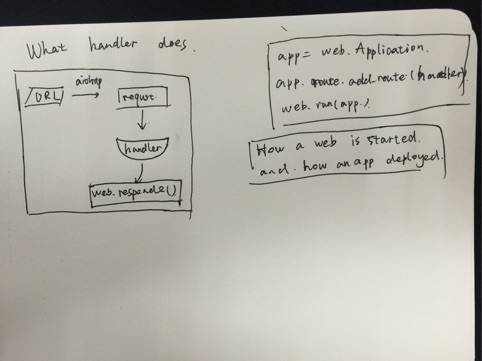 What handler does.
URL
aiohttp
requst
handler
web.response()
app = web.Application.
app. route. add_route (handler)
web.run(app.)
How a web is started.
and how an app deployed.